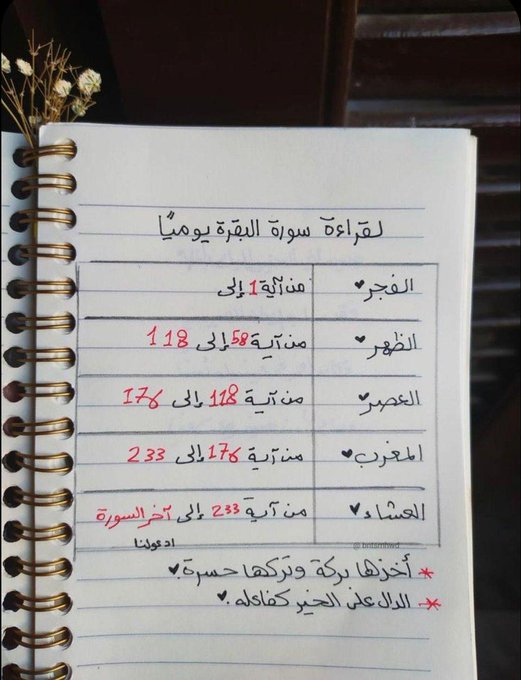 لقراءة سورة البقرة يوميًا
الفجر♥ من آية 1 إلى
الظهر♥ من آية 58 إلى 118
العصر♥ من آية 118 إلى 176
المغرب♥ من آية 176 إلى 233
العشاء♥ من آية 233 إلى آخر السورة
ادعولنا
* أخذها بركة وتركها حسرة.♥
* الدال على الخير كفاعله.♥